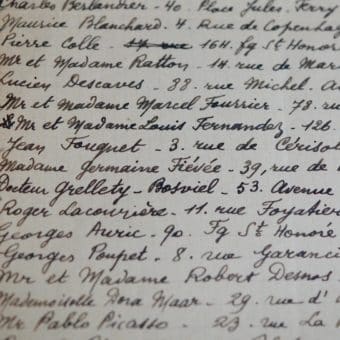 Charles Berlandrer - 40 Place Jules Ferry
Maurice Blanchard - 4. Rue de Copenhag
Pierre Colle - 164. Fg St Honor
Mr et Madame Ratton - 14. rue de Mar
Lucien Descaves - 88. rue Michel. A
Mr et Madame Marcel Fourrier - 78. r
Mr et Madame Louis Fernandez - 126.
Jean Fouquet - 3. rue de Cérisol
Madame Germaine Fiévée - 39, rue de
Docteur Grellety - Bosviel - 53. Avenue
Roger Lacourière - 11. rue Foyatier
Georges Auric - 90. Fg St Honoré
Georges Poupet - 8. rue Garanci
Mr et Madame Robert Desnos
Mademoiselle Dora Maar - 29. rue d'
Mr Pablo Picasso - 23. rue La B